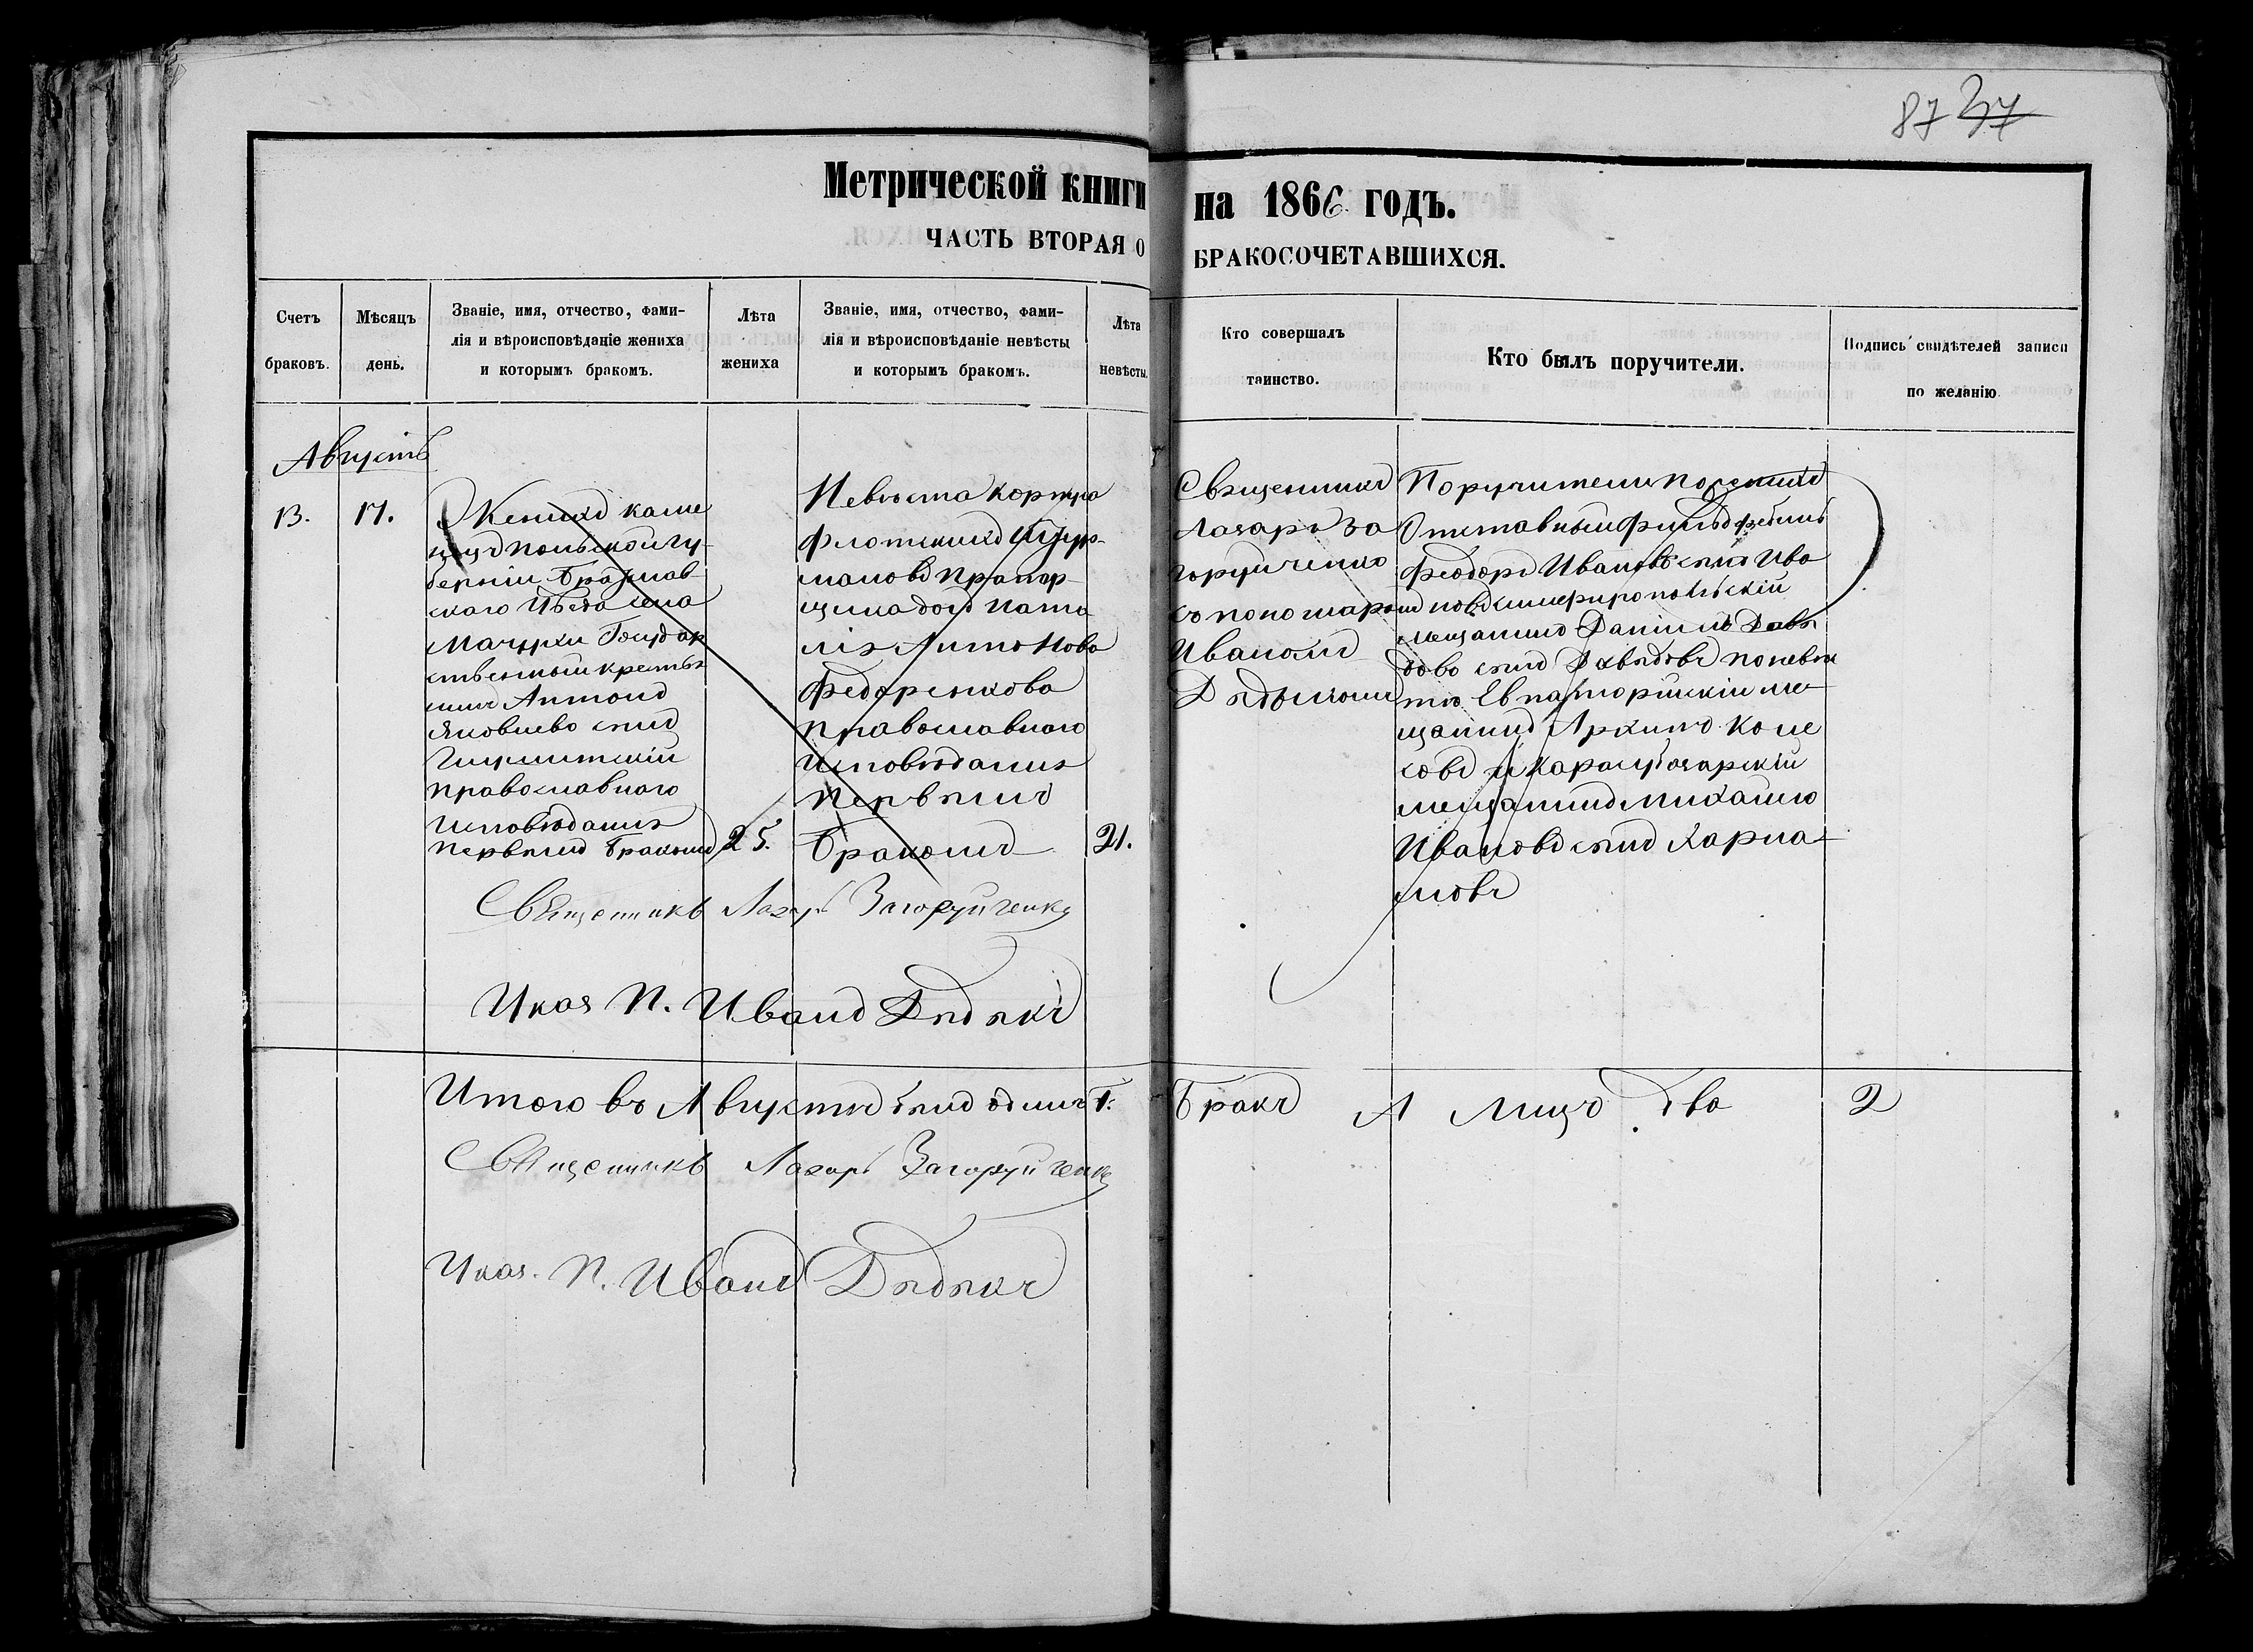 87 37
Метрической книги на 1866 годъ.
ЧАСТЬ ВТОРАЯ О БРАКОСОЧЕТАВШИХСЯ.
Счетъ браковъ.
Мѣсяцъ день.
Званіе, имя, отчество, фами-
лія и вѣроисповѣданіе жениха
и которымъ бракомъ.
Лѣта жениха
Званіе, имя, отчество, фами-
лія и вѣроисповѣданіе невѣсты
и которымъ бракомъ.
Лѣта невѣсты.
Кто совершалъ
таинство.
Кто былъ поручители.
Подпись свидѣтелей записи
по желанію
Августъ
13.
17.
Женихъ каме
нецъ польской гу-
берніи Брацлав-
скаго уезда села
Мачухи Государ
ственный крестья
нинъ Антонъ
Яковлевъ сынъ
православнаго
исповѣданія
первымъ бракомъ
25.
Невѣста корпуса
флотскихъ штур-
мановъ прапор-
щика дочь Ната
лія Антонова
Федоренкова
православнаго
исповѣданія
первымъ
бракомъ
21.
Священникъ
Лазарь За
горуйченко
съ пономаремъ
Иваномъ
Дядыкомъ
Поручители по женихѣ
Отставный фельдфебель
Феодоръ Ивановъ сынъ Ива
новъ и симферопольскій
мещанинъ Даніилъ Давы
довъ сынъ Давыдовъ по невѣс
тѣ Евпаторійскій ме-
щанинъ Архипъ Коле
совъ и Карасубазарскій
мещанинъ Михаилъ
Ивановъ сынъ Харла-
мовъ
Священникъ Лазарь Загоруйченко
Указ. П. Иванъ Дядыкъ
Итого въ Августѣ былъ одинъ 1. Бракъ А лицъ два 2
Священникъ Лазарь Загоруйченко
Указ. П. Иванъ Дядыкъ